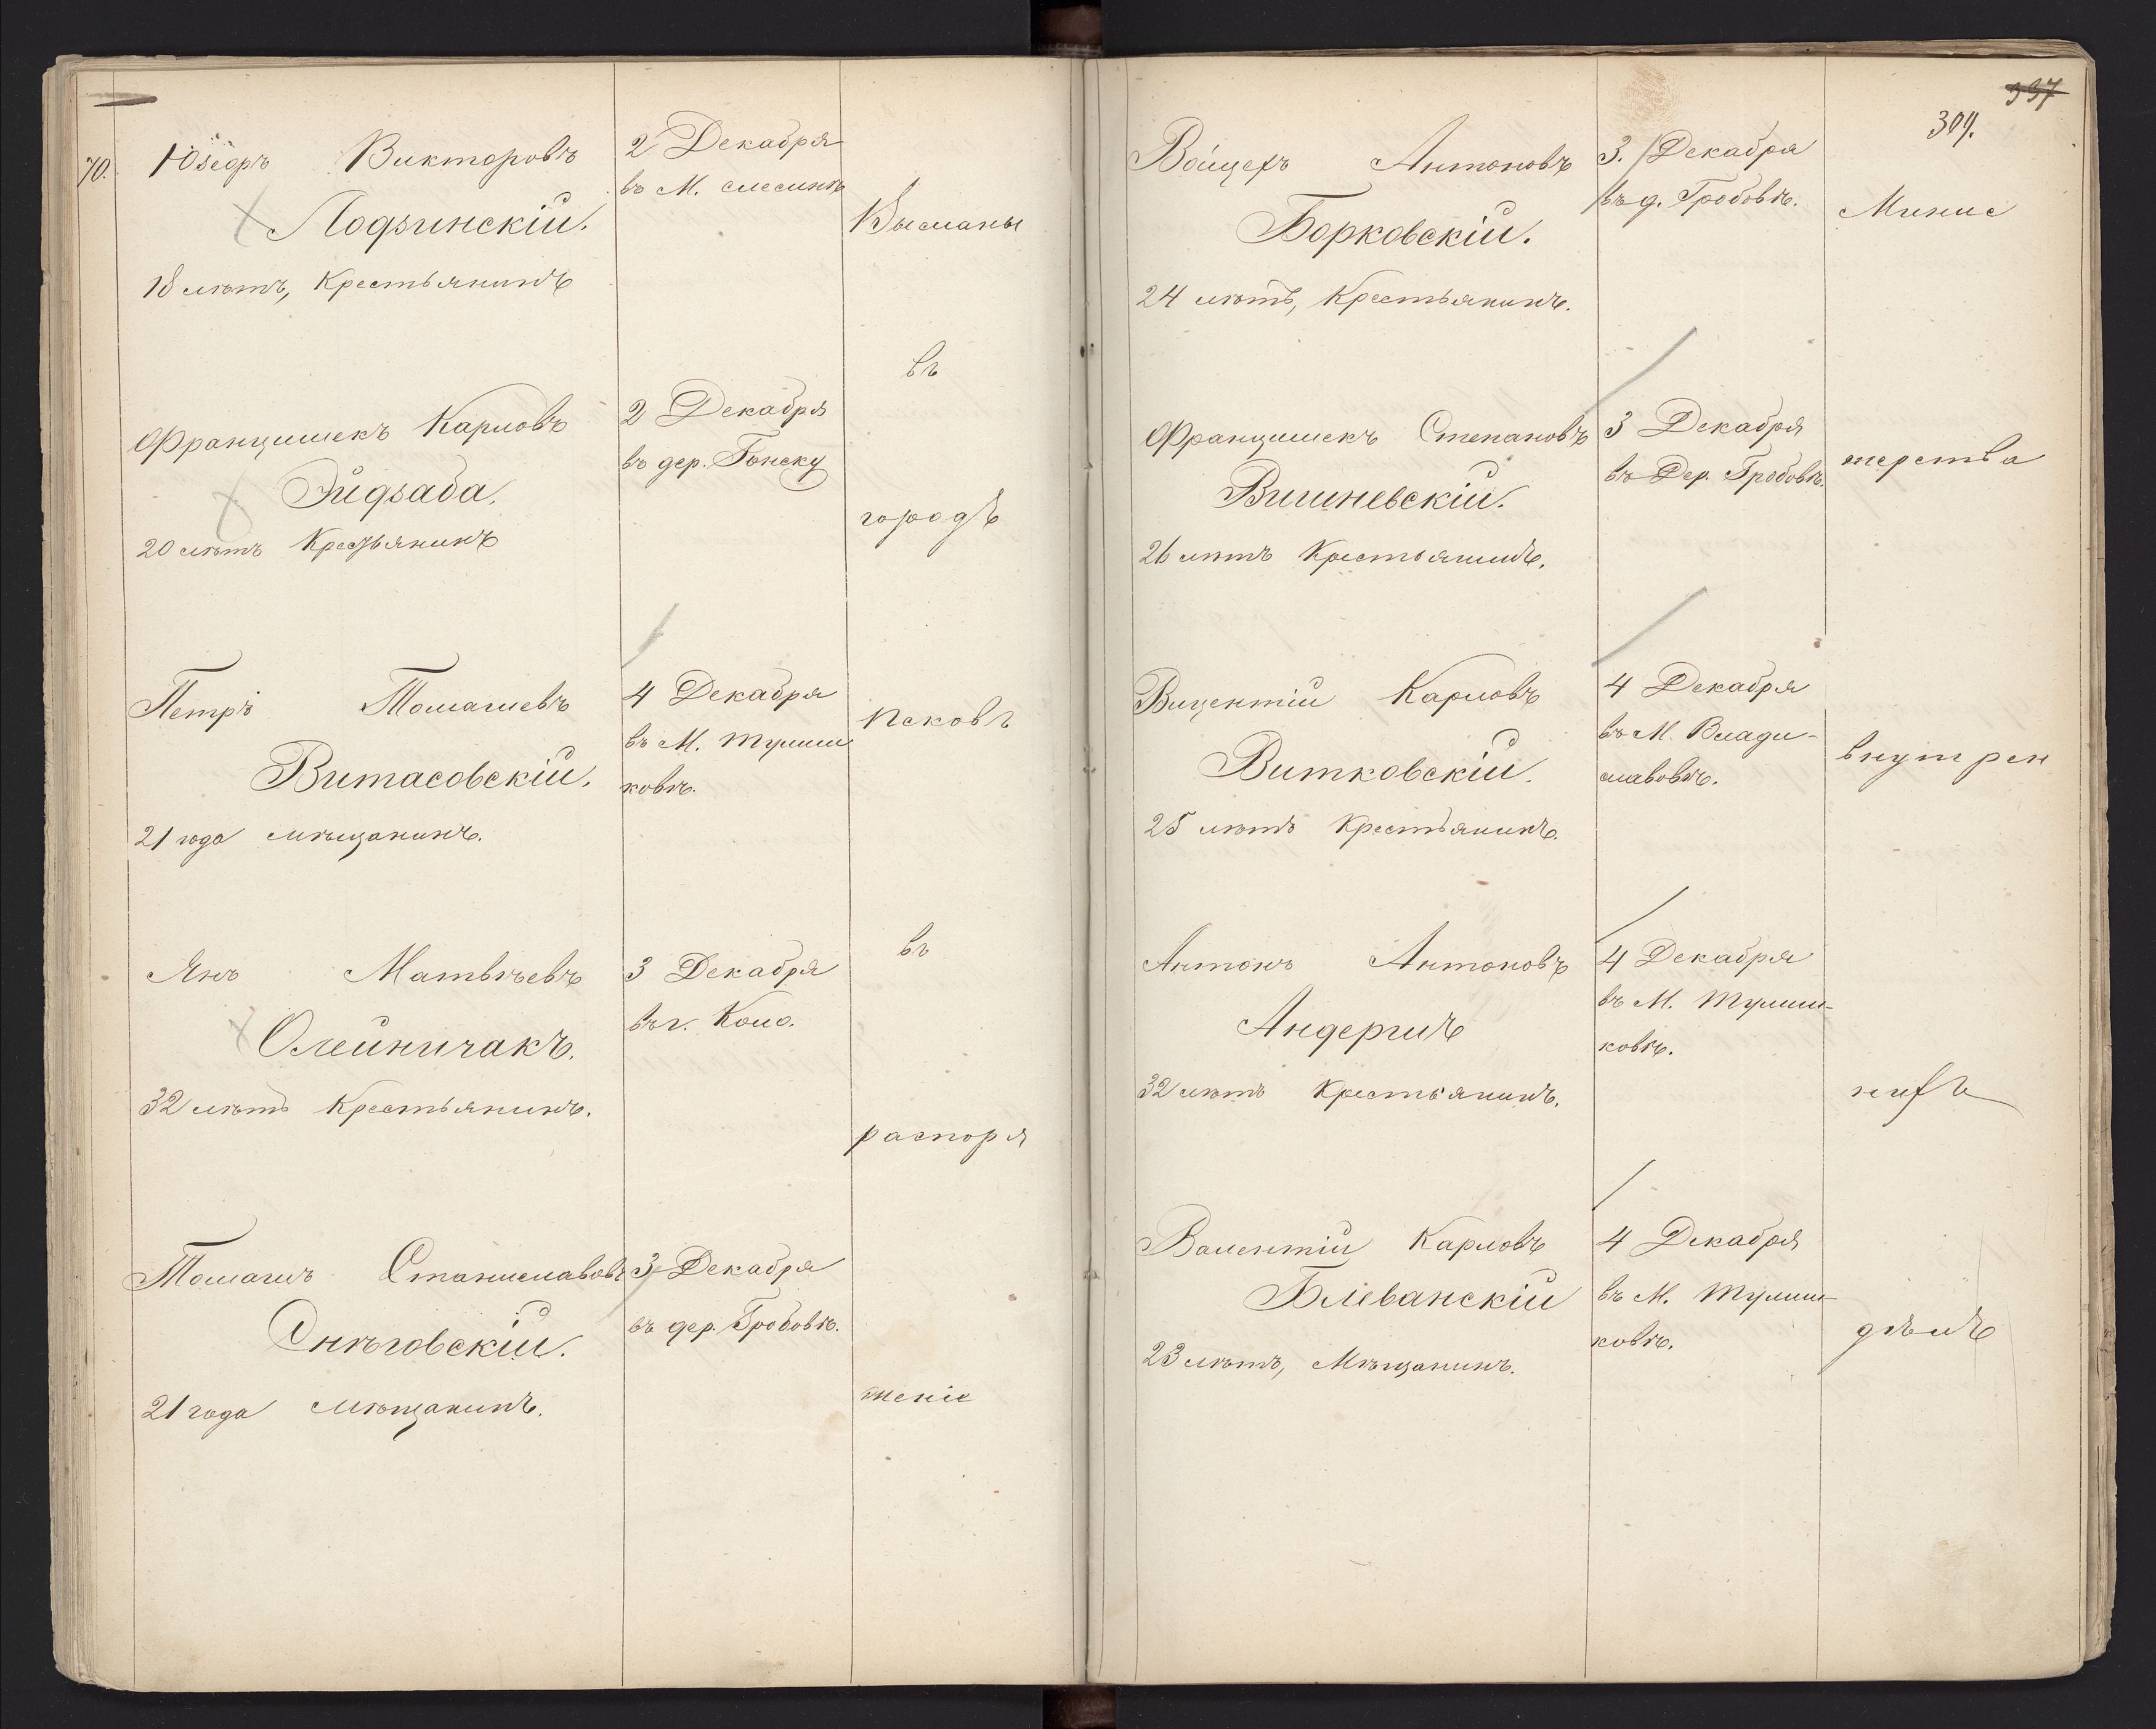 70. Юзефъ Викторовъ
Лодзинскій.
18 лѣтъ, Крестьянинъ
2 Декабря
въ М. Слесинѣ
Высланы
Францишекъ Карловъ
Эйдзаба.
20 лѣтъ Крестьянинъ
2 Декабря
въ дер. Гонску
въ
городъ
Петръ Томашевъ
Витасовскій.
21 года мѣщанинъ.
4 Декабря
въ М. Тулиш
ковѣ.
Псковъ
Янъ Матвѣевъ
Олейничакъ.
32 лѣтъ Крестьянинъ.
3 Декабря
въ г. Коло.
въ
распоря
Томашъ Станиславовъ
Снѣговскій.
21 года мѣщанинъ.
3 Декабря
въ дер. Гробовѣ.
женіе
337
309.
Войцехъ Антоновъ
Борковскій.
24 лѣтъ, Крестьянинъ.
3. Декабря
въ д. Гробовѣ.
Минис
Францишекъ Степановъ
Вишневскій.
26 лѣтъ Крестьянинъ.
3 Декабря
въ Дер. Гробовѣ.
терства
Вицентій Карловъ
Витковскій.
25 лѣтъ Крестьянинъ.
4 Декабря
въ М. Влади-
славовѣ.
внутрен
Антонъ Антоновъ
Андершъ
32 лѣтъ Крестьянинъ.
4 Декабря
въ М. Тулиш-
ковѣ.
нихъ
Валентій Карловъ
Блеванскій
23 лѣтъ, Мѣщанинъ.
4 Декабря
въ М. Тулиш-
ковѣ.
дѣлъ